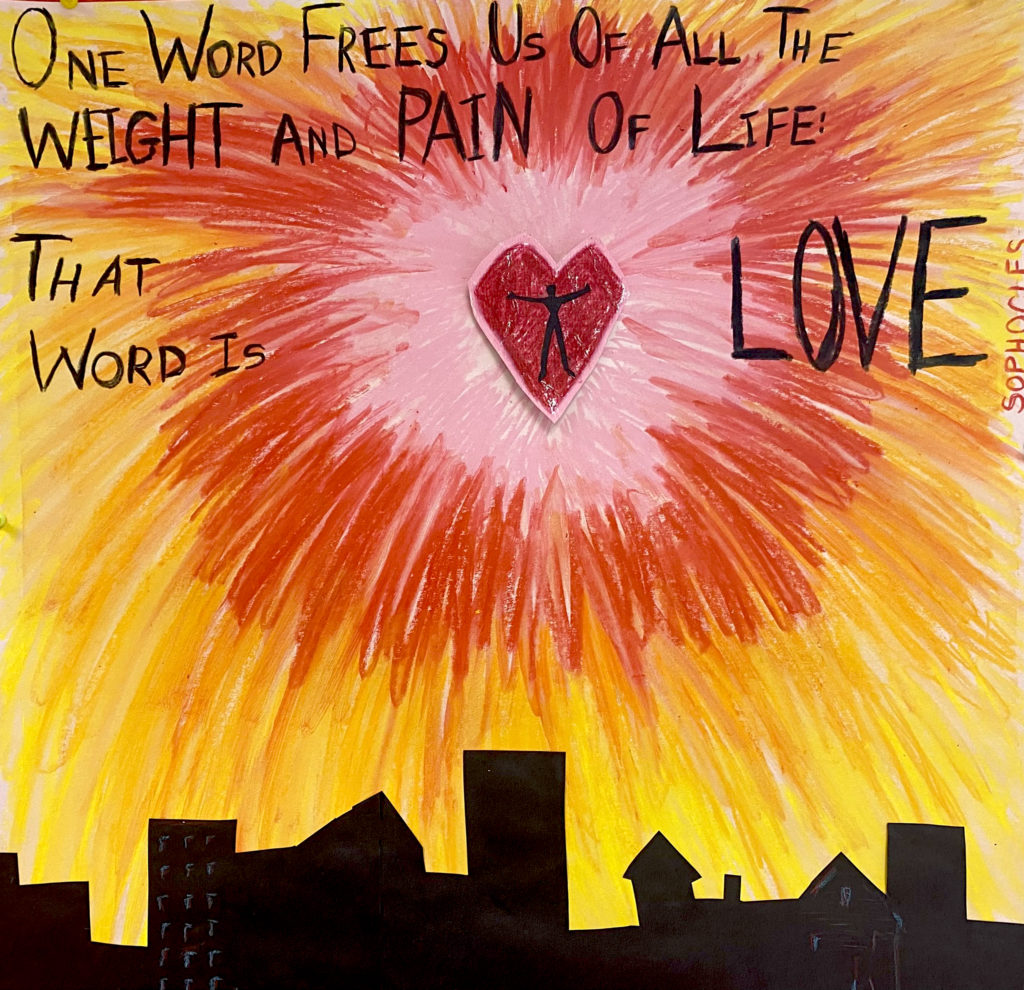 One Word Frees Us Of All The
WEIGHT AND PAIN OF LIFE:
THAT
WORD IS
LOVE
SOPHOCLES